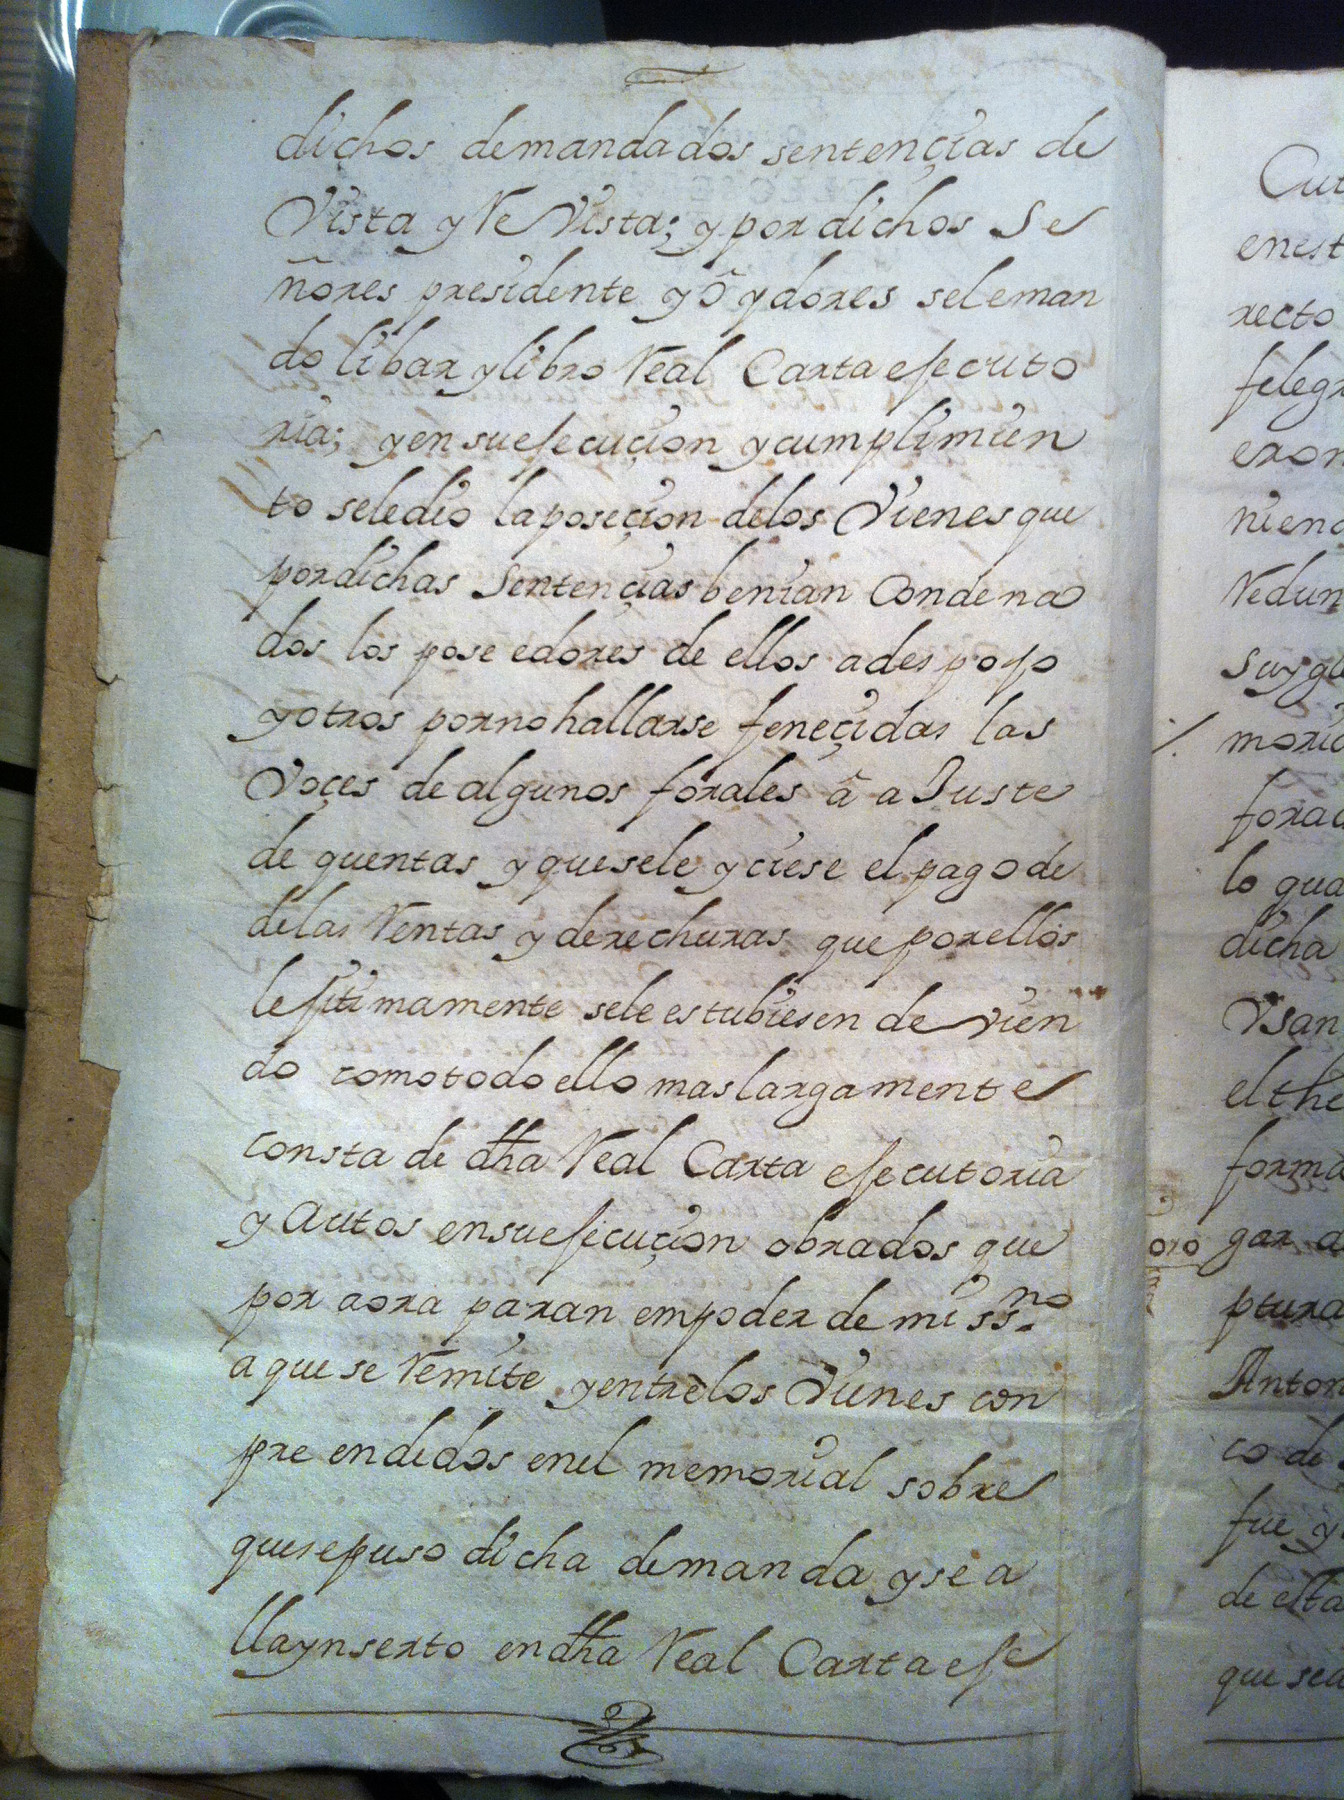 dichos demandados sentençias de
Vista y ReVista; y por dichos Se
ñores presidente y Oydores sele man
do libar y libro Real Carta ejecuto
ria; y en su ejecuçion y cumplimien
to sele dio la poseçion de los Vienes que
por dichas Sentençias benian Condena
dos los poseedores de ellos a despojo
y otros por no hallarse feneçidas las
Voçes de algunos forales â a Juste
de quentas y que sele yciese el pago de
de las Rentas y derechuras que por ellos
lejitimamente sele estubiesen de vien
do como todo ello mas largamente
consta de dha Real Carta ejecutoria
y Autos en su ejicuçion obrados que
por aora paran em poder de mi ssno.
a que se Remite y entre los Vienes con
preendidos en el memorial sobre
que se puso dicha demanda y se a
lla ynserto en dha Real Carta eje
Cut
enest
recto
felegr
exon
niend
Redun
Suyga
moric
forac
lo qua
dicha
Vsan
el the
forma
gar a
ptura
Anton
co de
fue y
de esta
que sea